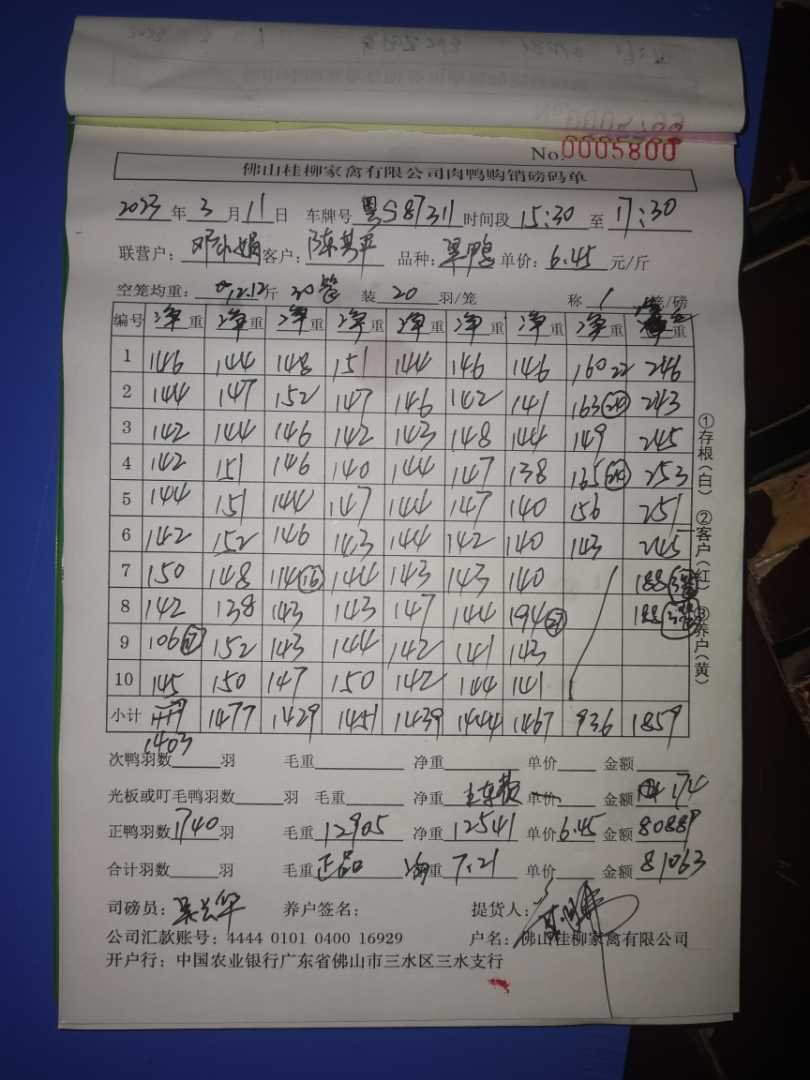 No.0005800
佛山桂柳家禽有限公司肉鸭购销磅码单
2023年3月11日 车牌号粤S87311时间段15:30至17:30
联营户: 邓 娟 客户: 陈其平 品种: 鸭 单价: 6.45元/斤
空笼均重: 12.12斤 装20羽/笼 称1笼/磅
编号 净重 净重 净重 净重 净重 净重 净重 净重 重
1 146 144 148 151 144 146 146 160 22 246
2 144 147 152 147 146 142 141 163 243
3 142 144 146 142 143 148 144 149 245
4 142 151 146 140 144 147 138 165 253
5 144 151 144 147 144 147 140 156 251
6 142 152 146 143 144 142 140 143 245
7 150 148 114(16) 144 143 143 140 188
8 142 138 143 143 147 144 194 188
9 106 152 143 144 142 141 143
10 145 150 147 150 142 144 141
小计 1477 1429 1451 1439 1444 1467 936 1859
1403
次鸭羽数 羽 毛重 净重 单价 金额
光板或叮毛鸭羽数 羽 毛重 净重 单价 金额 174
正鸭羽数1740羽 毛重12905 净重12541 单价6.45 金额80889
合计羽数 羽 毛重正品 净重7.21 单价 金额81063
司磅员: 养户签名: 提货人:
公司汇款账号: 4444 0101 0400 16929 户名: 佛山桂柳家禽有限公司
开户行: 中国农业银行广东省佛山市三水区三水支行
①存根(白) ②客户(红) ③养户(黄)